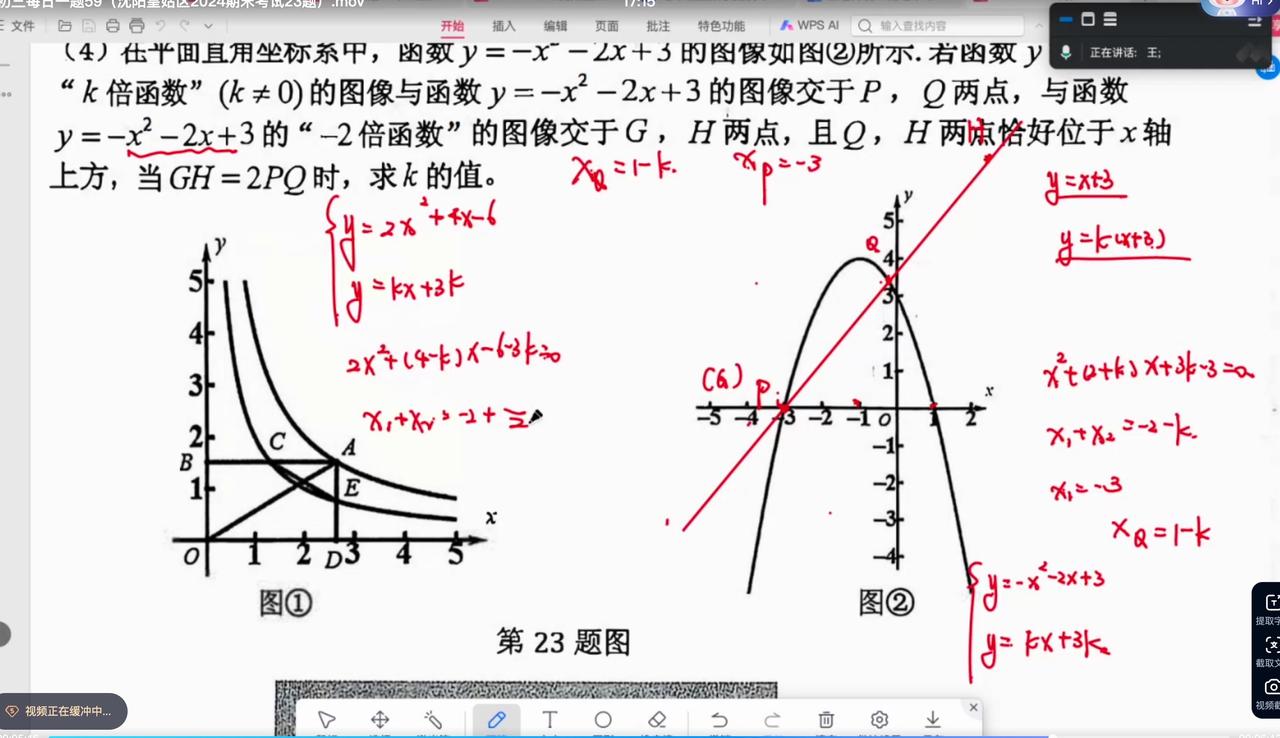 初三每日一题59（沈阳皇姑区2024期末考试23题）.mov
17:15
文件
开始 插入 编辑 页面 批注 特色功能 WPS AI 输入查找内容
正在讲话: 王;
（4）在平面直角坐标系中，函数 y=-x²-2x+3 的图像如图②所示. 若函数 y
“k 倍函数” (k≠0) 的图像与函数 y=-x²-2x+3 的图像交于 P，Q 两点，与函数
y=-x²-2x+3 的 “-2 倍函数” 的图像交于 G，H 两点，且 Q，H 两点恰好位于 x 轴
上方，当 GH=2PQ 时，求 k 的值。
x_Q=1-k. x_P=-3
H
y=x+3
y=k(x+3)
y=2x²+4x-6
y=kx+3k
2x²+(4-k)x-6-3k=0
x₁+x₂=-2+
y
5
4
3
2
1
B
C
A
E
x
O 1 2 D 3 4 5
图①
y
5
Q
4
3
2
1
(G) P
x
-5 -4 -3 -2 -1 O 1 2
-1
-2
-3
-4
图②
x²+(2+k)x+3k-3=0
x₁+x₂=-2-k.
x₁=-3
x_Q=1-k
y=-x²-2x+3
y=kx+3k
第 23 题图
提取字
截取文
视频截
视频正在缓冲中...